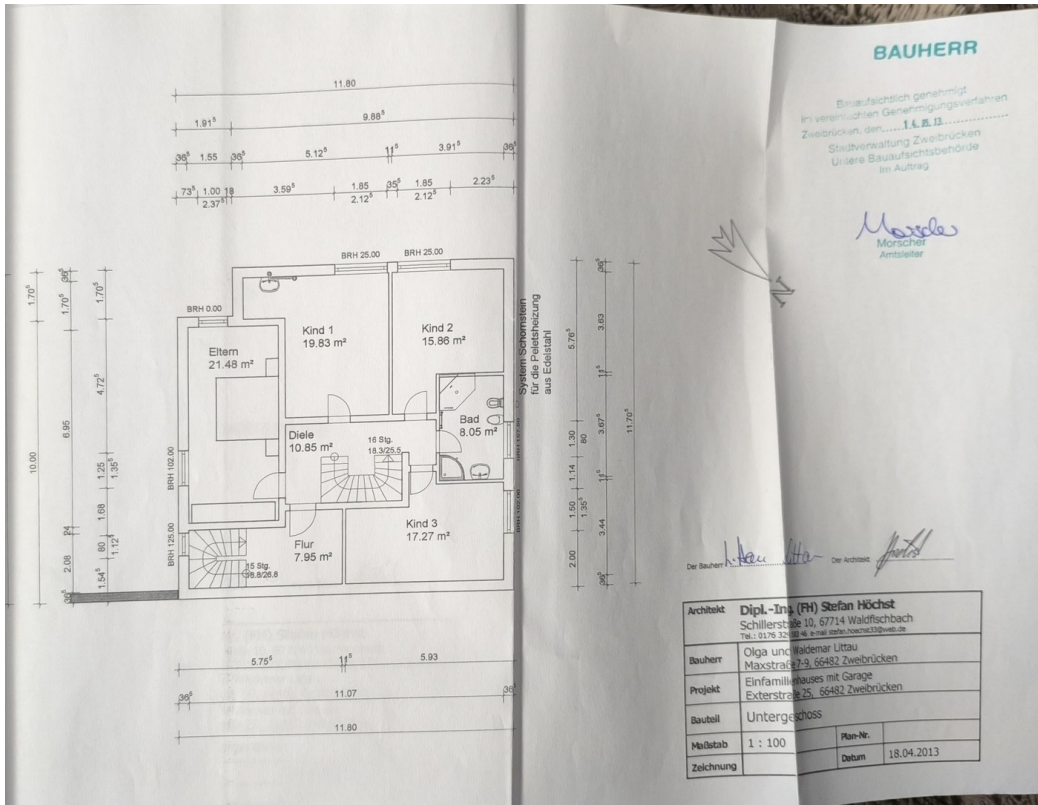 BAUHERR
Bauaufsichtlich genehmigt
im vereinfachten Genehmigungsverfahren
Zweibrücken, den
Stadtverwaltung Zweibrücken
Untere Bauaufsichtsbehörde
Im Auftrag
Morscher
Amtsleiter
11.80
1.91⁵ 9.88⁵
36⁵ 1.55 36⁵ 5.12⁵ 11⁵ 3.91⁵ 36⁵
73⁵ 1.00 18 3.59⁵ 1.85 35⁵ 1.85 2.23⁵
2.37⁵ 2.12⁵ 2.12⁵
BRH 25.00 BRH 25.00
BRH 0.00
Eltern
21.48 m²
Kind 1
19.83 m²
Kind 2
15.86 m²
Bad
8.05 m²
Diele
10.85 m²
16 Stg.
18.3/25.5
Kind 3
17.27 m²
Flur
7.95 m²
15 Stg.
BRH 102.00
BRH 125.00
System Schornstein
für die Peletsheizung
aus Edelstahl
1.70⁵
10.00
36⁵
1.70⁵
6.95
24
2.08
36⁵
1.70⁵
4.72⁵
1.25
1.35⁵
1.68
80
1.12⁵
1.54⁵
5.76⁵
1.30
80
1.14
1.50
1.35⁵
2.00
36⁵
3.63
11⁵
3.67⁵
11⁵
3.44
36⁵
11.70⁵
N
5.75⁵ 11⁵ 5.93
36⁵ 11.07 36⁵
11.80
Der Bauherr Der Architekt
Architekt Dipl.-Ing. (FH) Stefan Höchst
Schillerstraße 10, 67714 Waldfischbach
Bauherr Olga und Waldemar Littau
Maxstraße 7-9, 66482 Zweibrücken
Projekt Einfamilienhauses mit Garage
Exterstraße 25, 66482 Zweibrücken
Bauteil Untergeschoss
Maßstab 1 : 100 Plan-Nr.
Zeichnung Datum 18.04.2013